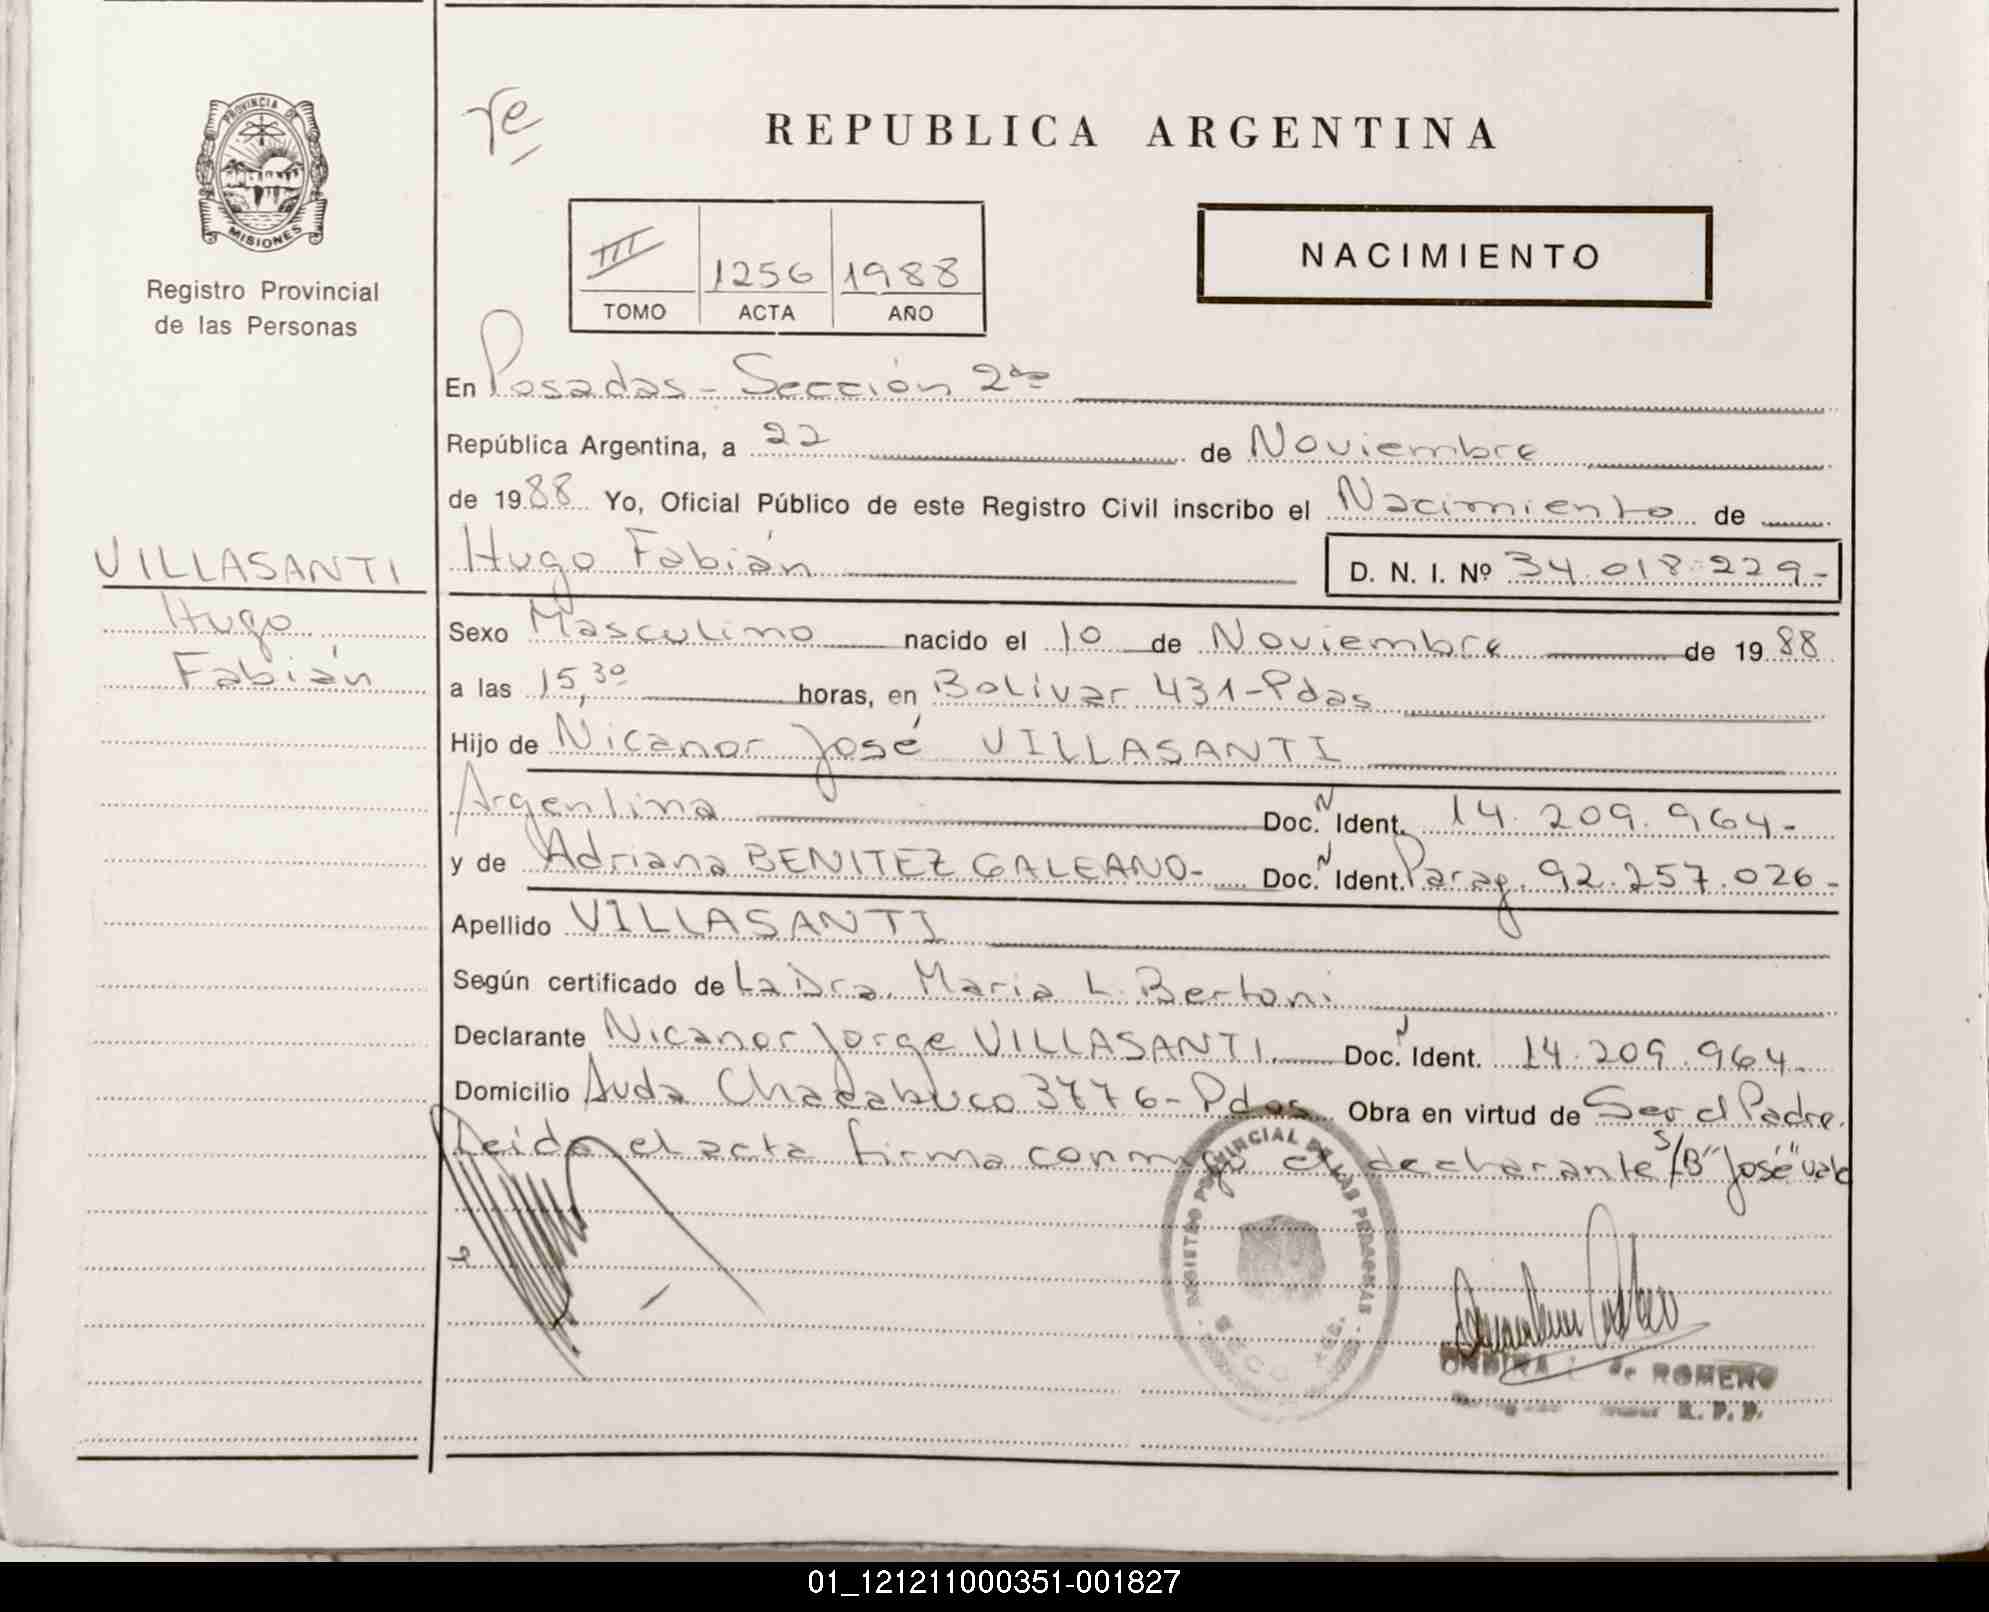 PROVINCIA DE
MISIONES
Registro Provincial
de las Personas
VILLASANTI
Hugo
Fabián
REPUBLICA ARGENTINA
III 1256 1988
TOMO ACTA AÑO
NACIMIENTO
En Posadas - Sección 2da
República Argentina, a 22 de Noviembre
de 1988 Yo, Oficial Público de este Registro Civil inscribo el Nacimiento de
Hugo Fabián D. N. I. Nº 34.018.229-
Sexo Masculino nacido el 10 de Noviembre de 1988
a las 15,30 horas, en Bolívar 431-Pdas
Hijo de Nicanor José VILLASANTI
Argentina Doc. N Ident. 14.209.964-
y de Adriana BENITEZ GALEANO- Doc. N Ident. Parag. 92.257.026-
Apellido VILLASANTI
Según certificado de La Dra. Maria L. Bertoni
Declarante Nicanor Jorge VILLASANTI Doc. N Ident. 14.209.964-
Domicilio Avda Chacabuco 3776-Pdas Obra en virtud de Ser el Padre.
Leida el acta firma conmigo el declarante S/B "José" vale
REGISTRO PROVINCIAL DE LAS PERSONAS
de ROMERO
R. P. P.
01_121211000351-001827